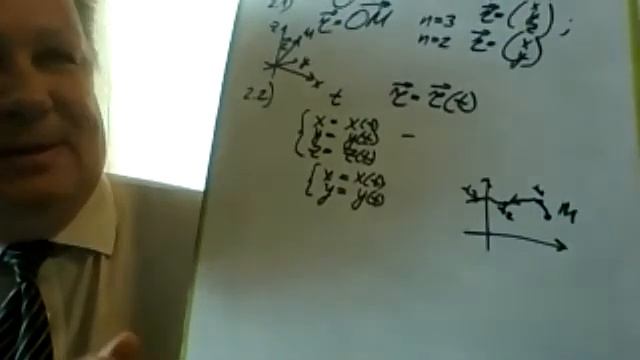 2.1) r⃗ = OM⃗ n=3 r⃗ = (x y z) ;
n=2 r⃗ = (x y)
z M y x
2.2) t r⃗ = r⃗(t)
{ x = x(t)
y = y(t) –
z = z(t)
{ x = x(t)
y = y(t)
M